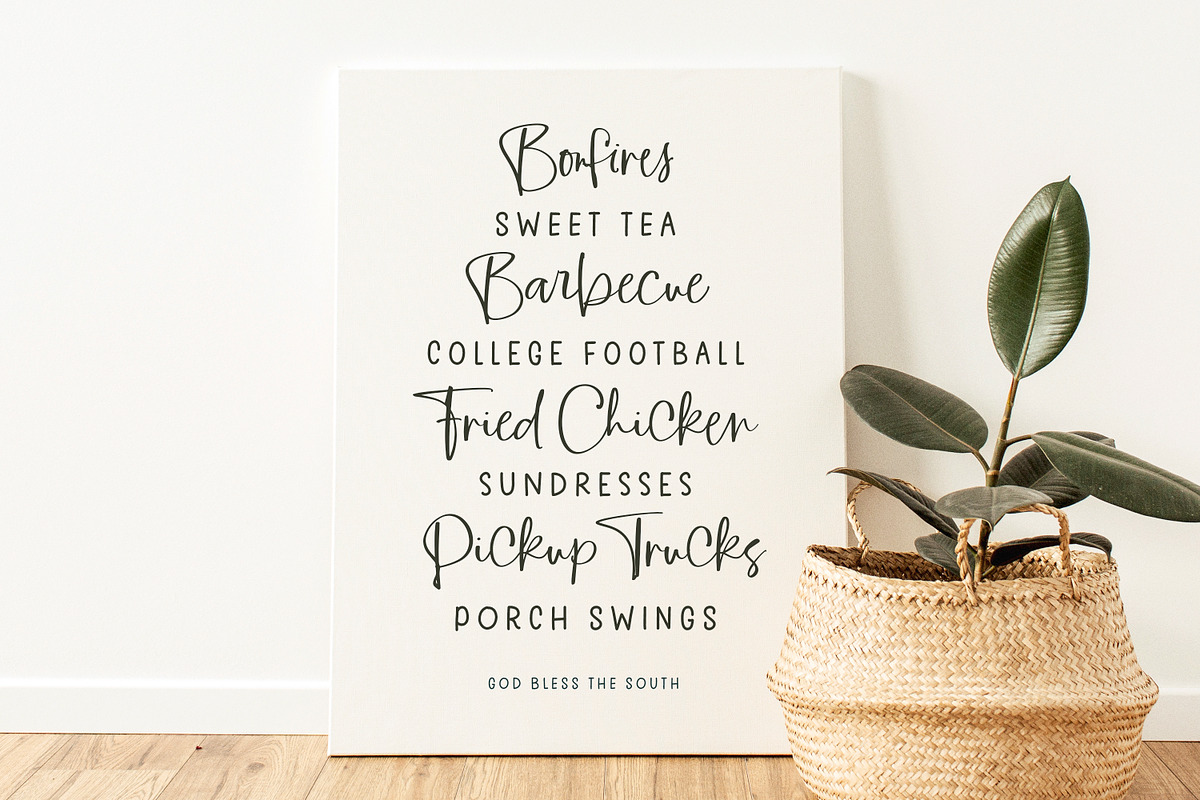 Bonfires
SWEET TEA
Barbecue
COLLEGE FOOTBALL
Fried Chicken
SUNDRESSES
Pickup Trucks
PORCH SWINGS
GOD BLESS THE SOUTH